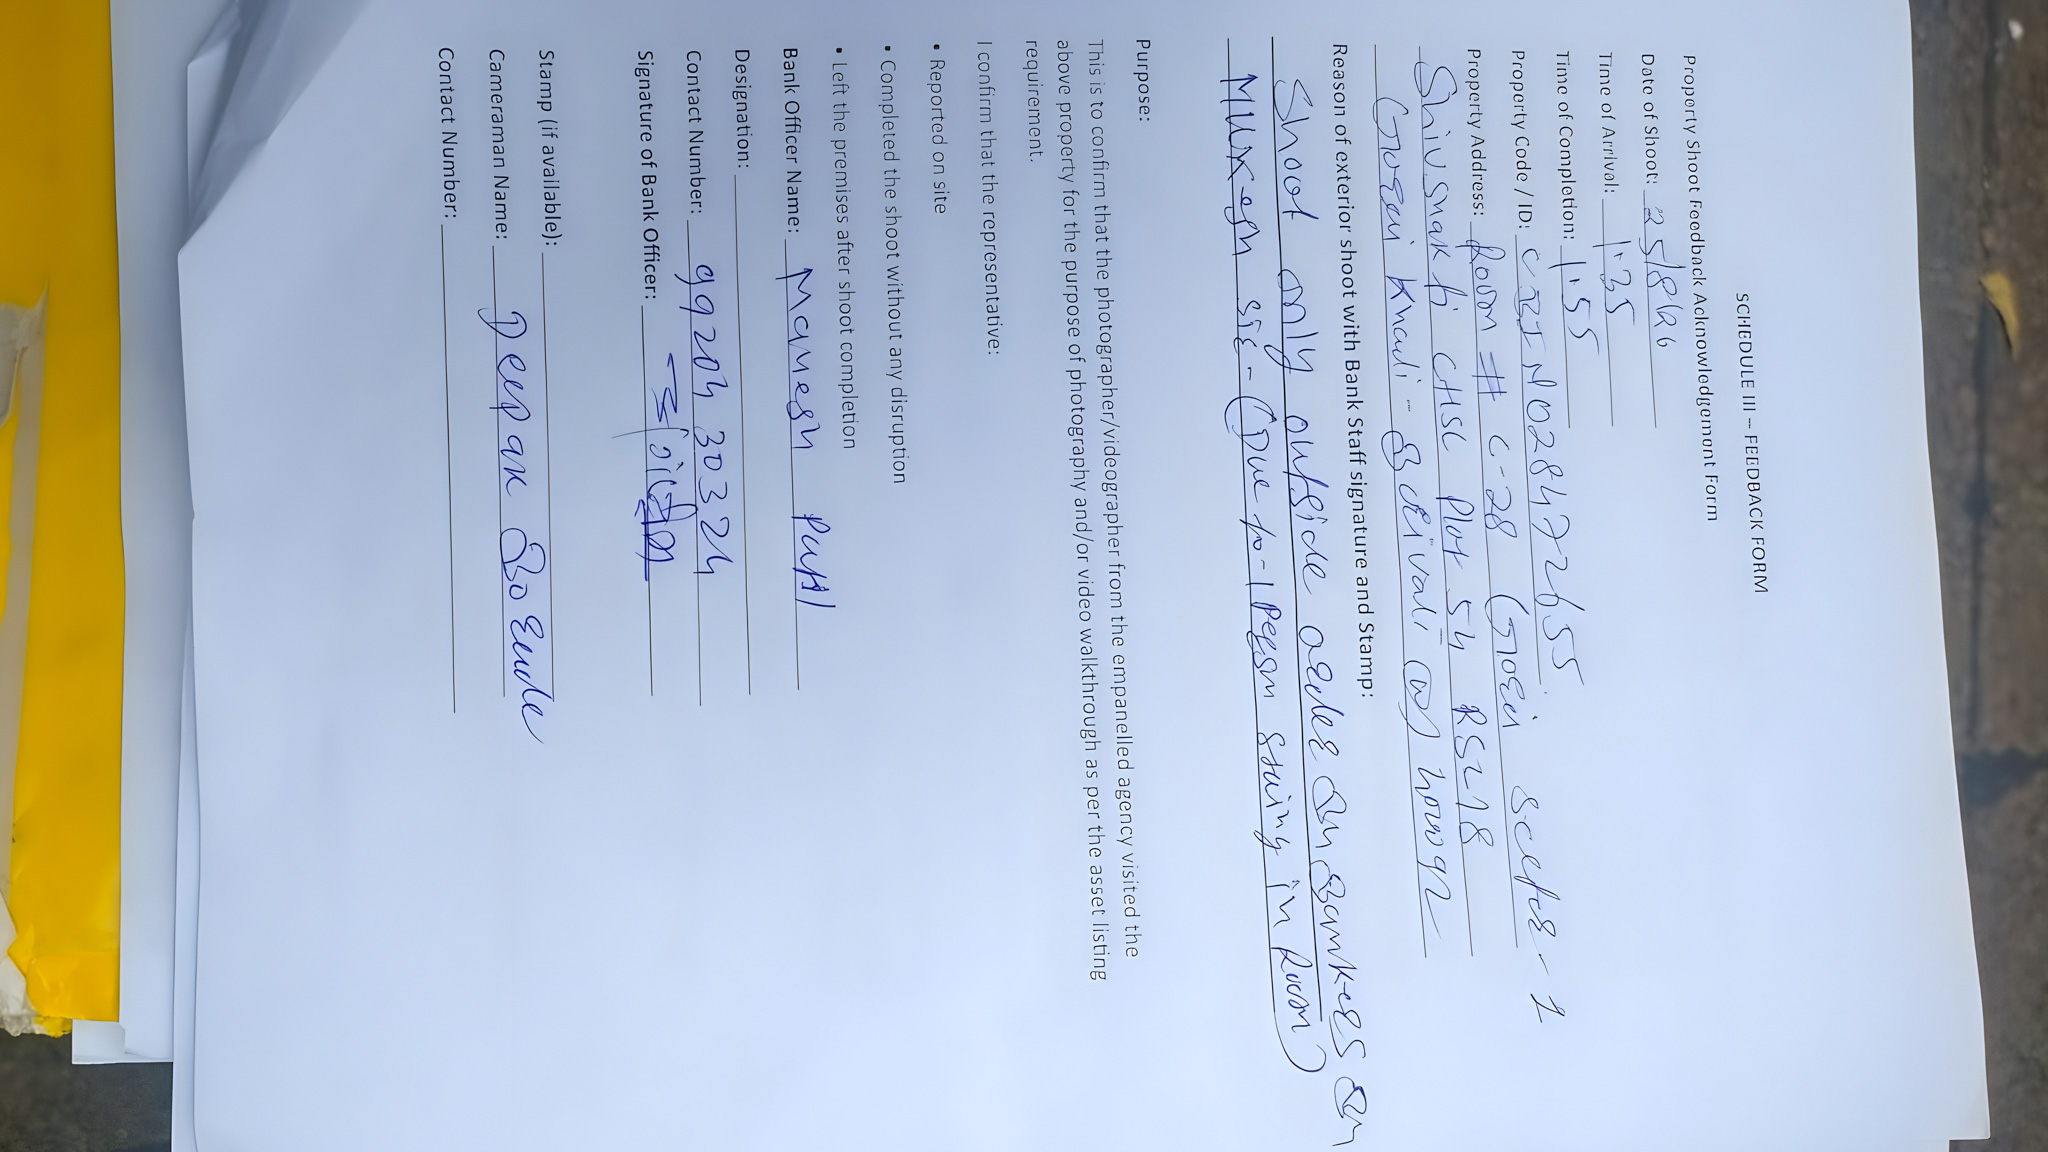 SCHEDULE III – FEEDBACK FORM
Property Shoot Feedback Acknowledgement Form
Date of Shoot: 25/8/26
Time of Arrival: 1.35
Time of Completion: 1.55
Property Code / ID:
Property Address: Room # C-28 Gorai sector-1
Shivshakti CHSL Plot 54 RSC18
Gorai Khadi - Borivali (w)
Reason of exterior shoot with Bank Staff signature and Stamp:
Shoot only outside order
Mukesh sir - (Due to - 1 Person in Room)
Purpose:
This is to confirm that the photographer/videographer from the empanelled agency visited the
above property for the purpose of photography and/or video walkthrough as per the asset listing
requirement.
I confirm that the representative:
• Reported on site
• Completed the shoot without any disruption
• Left the premises after shoot completion
Bank Officer Name: Manesh Patil
Designation:
Contact Number: 9920430324
Signature of Bank Officer:
Stamp (if available):
Cameraman Name: Deepak
Contact Number: